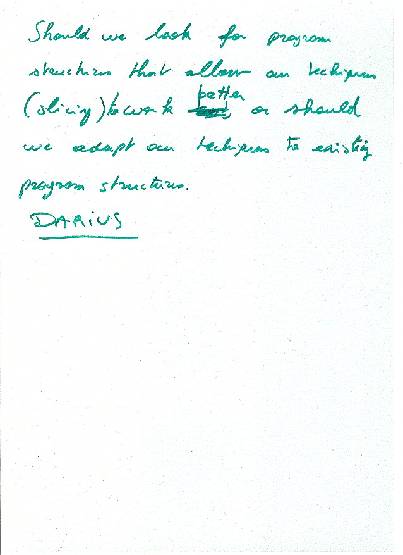 Should we look for program
structures that allow our techniques
(slicing) to work better or should
we adapt our techniques to existing
program structures.
DARIUS